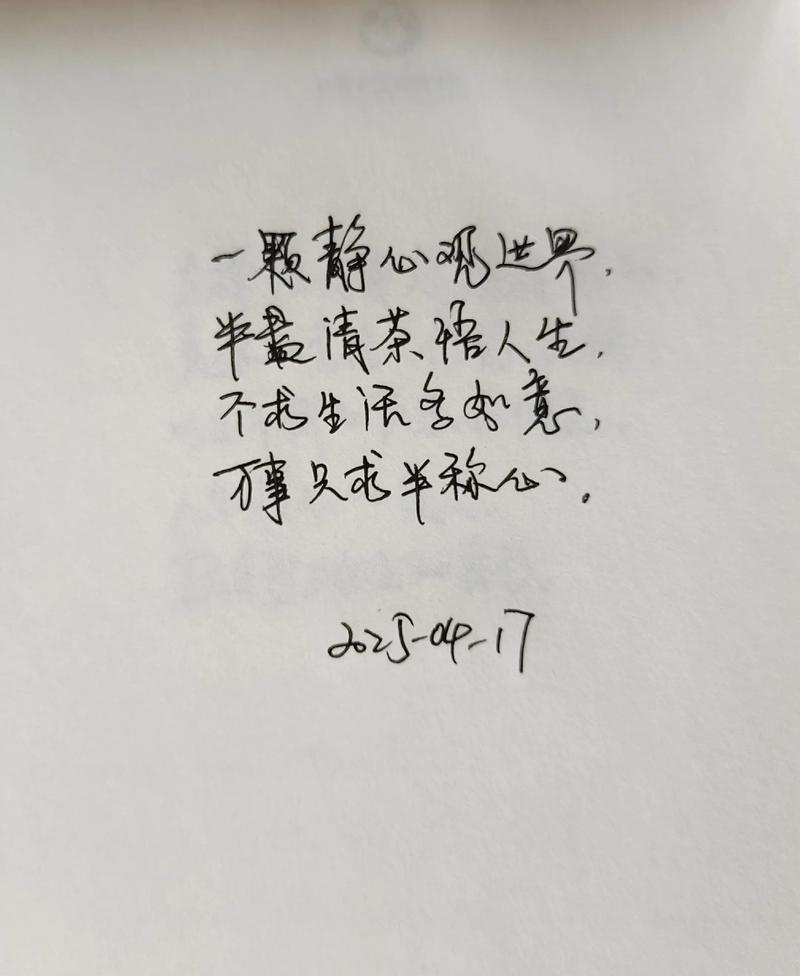 一颗静心观世界，
半盏清茶悟人生，
不求生活多如意，
万事只求半称心。
2025-04-17